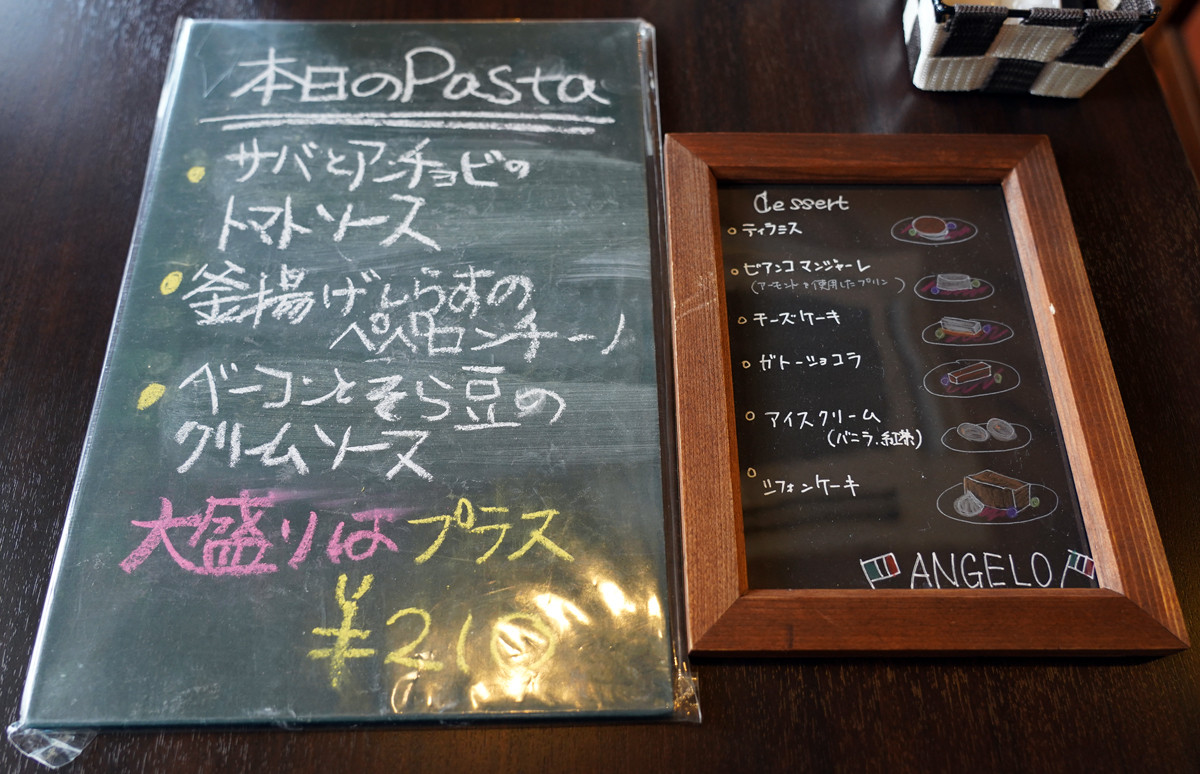 本日のPasta
サバとアンチョビの
トマトソース
釜揚げしらすの
ペペロンチーノ
ベーコンとそら豆の
クリームソース
大盛りは プラス
¥210
Dessert
ティラミス
ビアンコマンジャーレ
(アーモンドを使用したプリン)
チーズケーキ
ガトーショコラ
アイスクリーム
(バニラ.紅茶)
シフォンケーキ
ANGELO